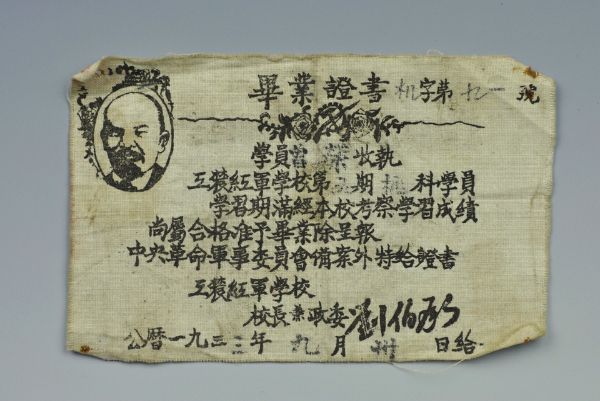 畢業證書 机字第九一號
學員宫榮收執
工農紅軍學校第五期机科學員
學習期滿經本校考察學習成績
尚屬合格准予畢業除呈報
中央革命軍事委員會備案外特給證書
工農紅軍學校
校長兼政委劉伯承
公曆一九三三年九月卅日給